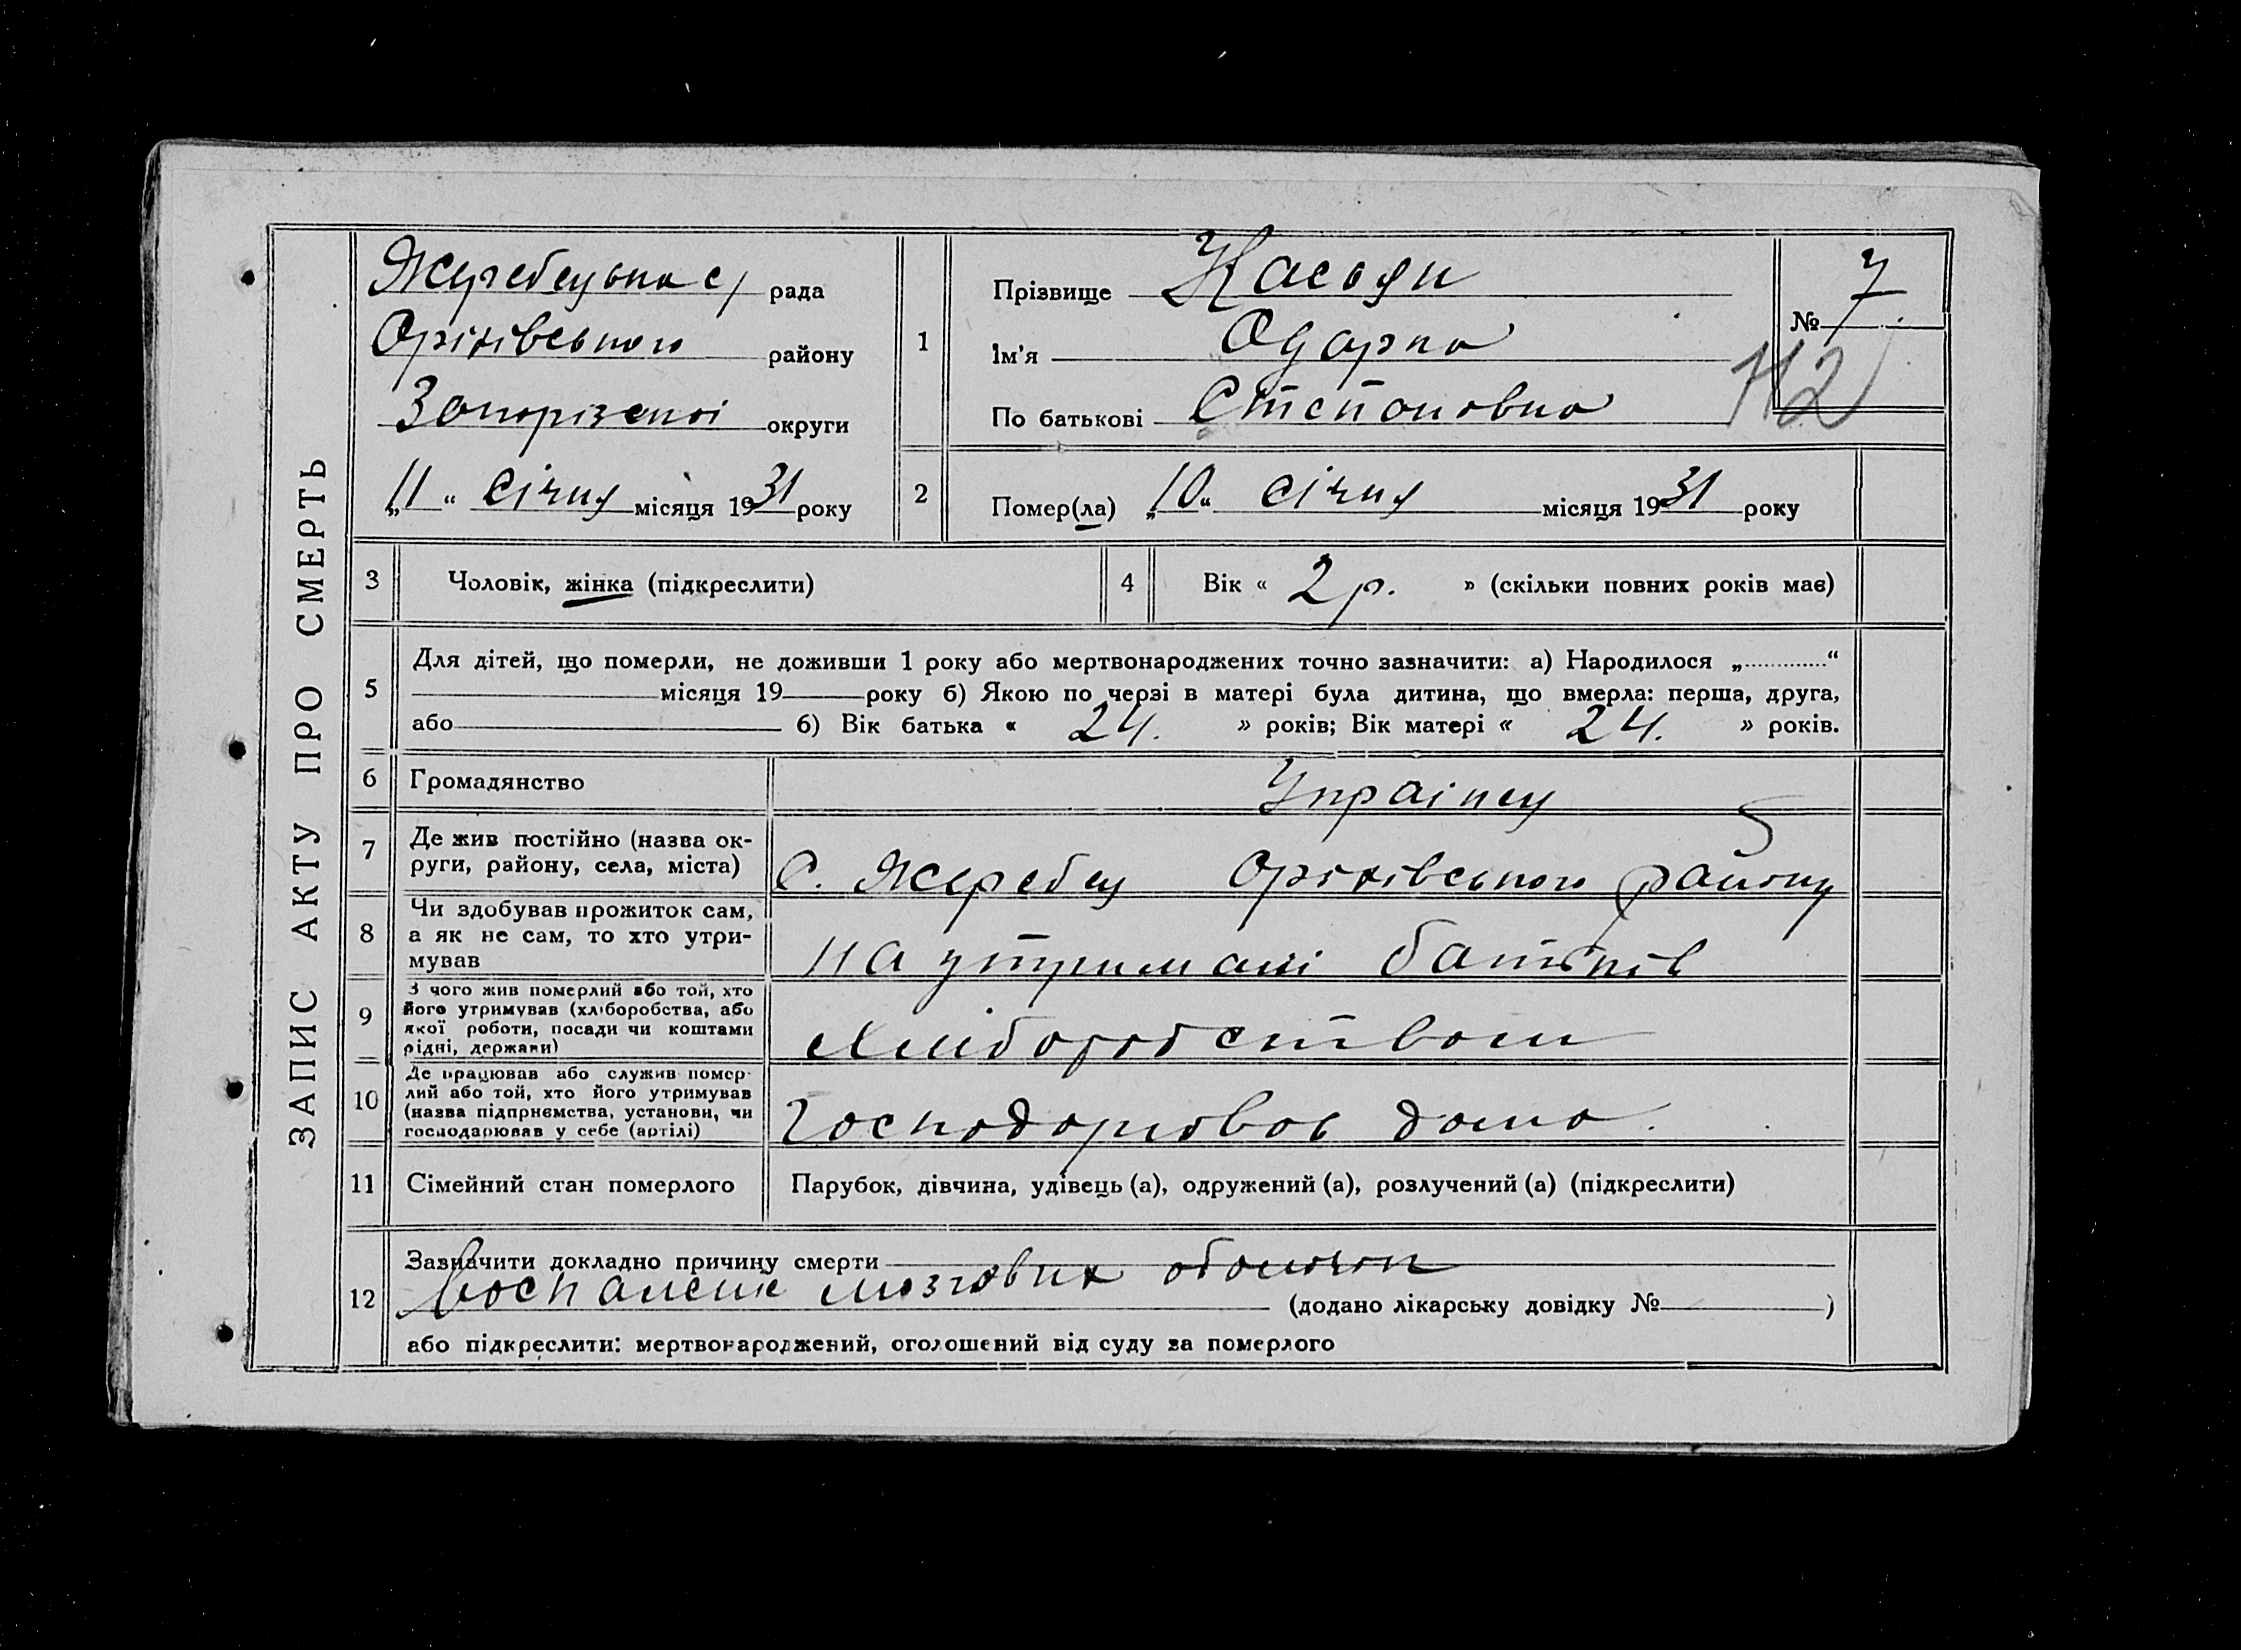 ЗАПИС АКТУ ПРО СМЕРТЬ
Жеребецька с/ рада
Оріхівського району
Запорізської округи
„11“ Січня місяця 1931 року
1
Прізвище
Ім'я Одарка
По батькові Степановна
№ 7
112
2
Помер(ла) „10“ Січня місяця 1931 року
3 Чоловік, жінка (підкреслити)
4 Вік « 2 р. » (скільки повних років має)
5 Для дітей, що померли, не доживши 1 року або мертвонароджених точно зазначити: а) Народилося „.............“
місяця 19 року б) Якою по черзі в матері була дитина, що вмерла: перша, друга,
або б) Вік батька « 24. » років; Вік матері « 24. » років.
6 Громадянство Украінец
7 Де жив постійно (назва ок-
руги, району, села, міста) С. Жеребец Оріхівського району
8 Чи здобував прожиток сам,
а як не сам, то хто утри-
мував на утримані батьків
9 З чого жив померлий або той, хто
його утримував (хліборобства, або
якої роботи, посади чи коштами
рідні, держави) Хліборобством
10 Де працював або служив помер-
лий або той, хто його утримував
(назва підприємства, установи, чи
господарював у себе (артілі) Господорював дома.
11 Сімейний стан померлого Парубок, дівчина, удівець (а), одружений (а), розлучений (а) (підкреслити)
12 Зазначити докладно причину смерти
Воспаление мозгових оболочок (додано лікарську довідку № )
або підкреслити: мертвонароджений, оголошений від суду за померлого